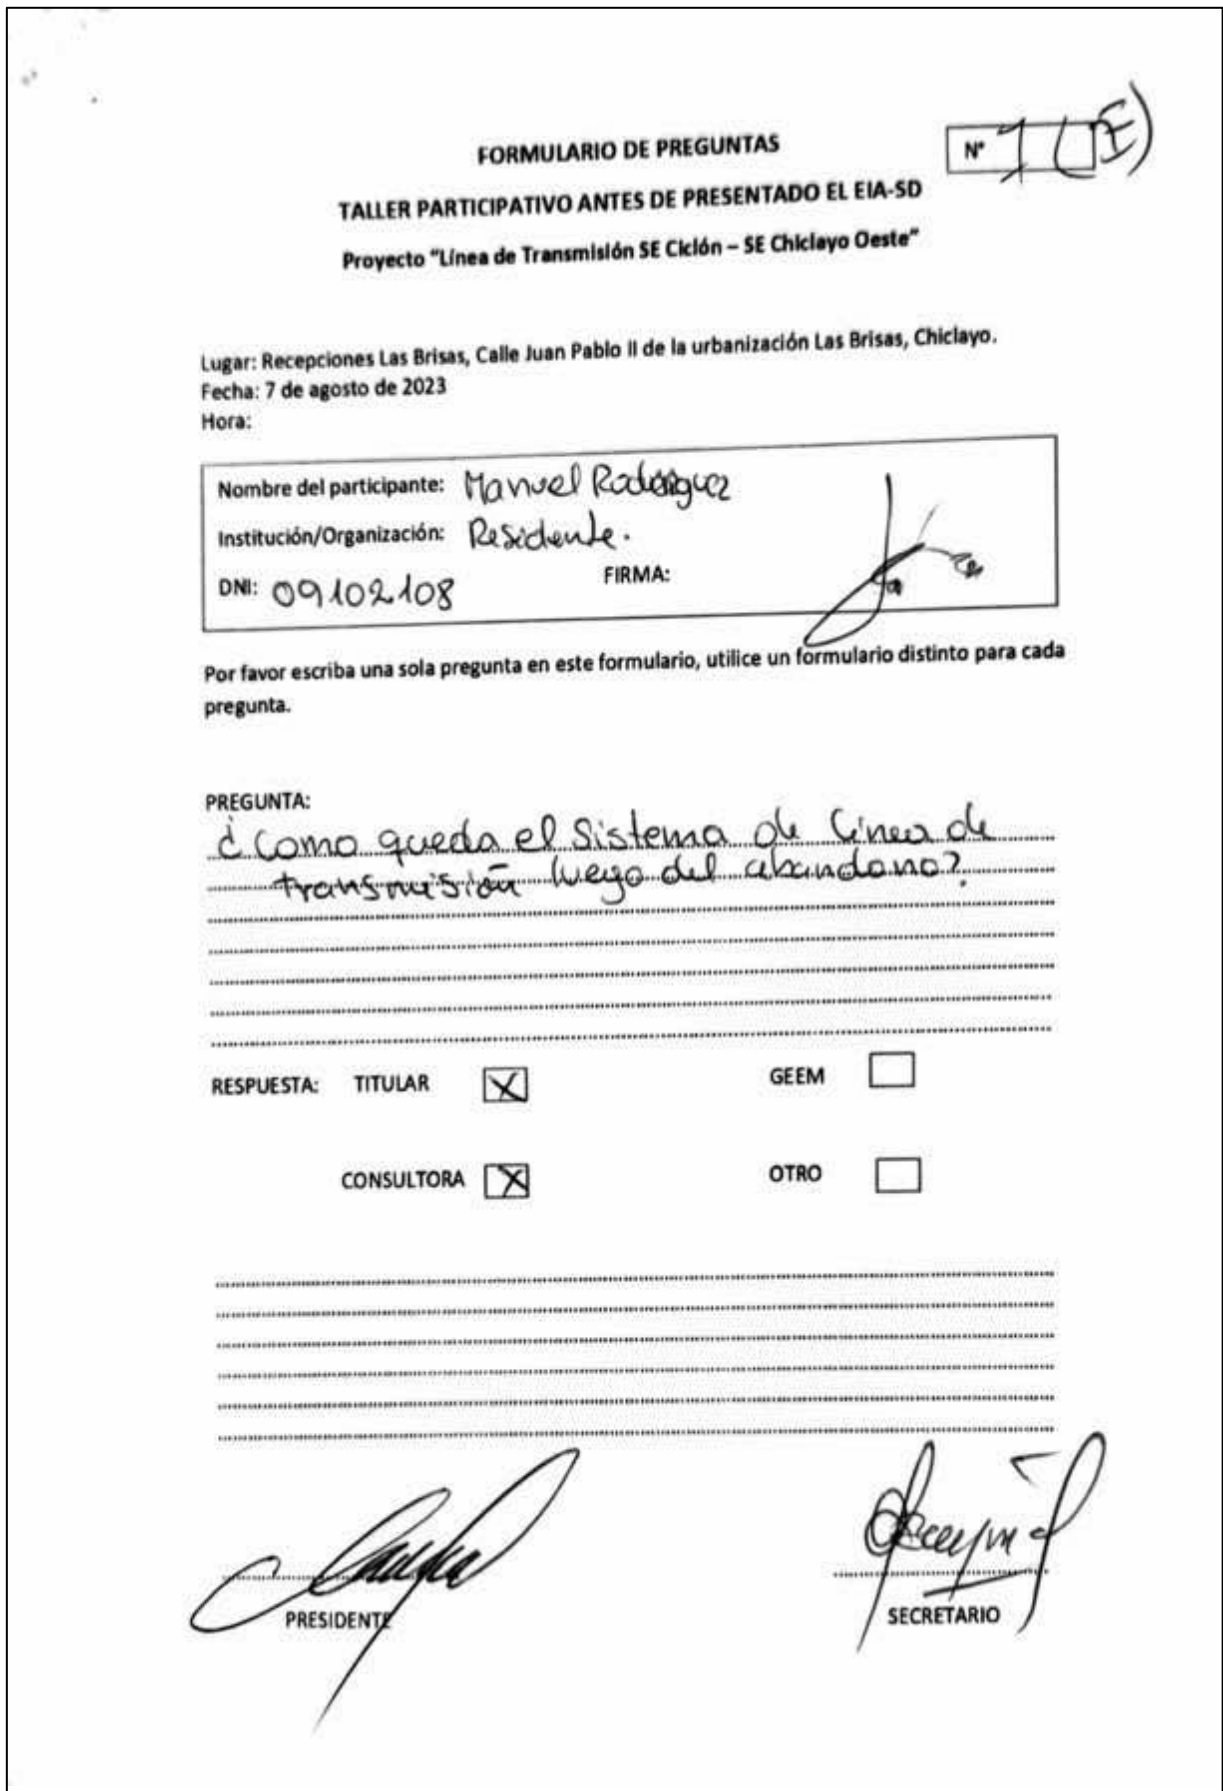 FORMULARIO DE PREGUNTAS
N° 1 (E)
TALLER PARTICIPATIVO ANTES DE PRESENTADO EL EIA-SD
Proyecto "Línea de Transmisión SE Ciclón – SE Chiclayo Oeste"
Lugar: Recepciones Las Brisas, Calle Juan Pablo II de la urbanización Las Brisas, Chiclayo.
Fecha: 7 de agosto de 2023
Hora:
Nombre del participante: Manuel Rodriguez
Institución/Organización: Residente.
DNI: 09102108 FIRMA:
Por favor escriba una sola pregunta en este formulario, utilice un formulario distinto para cada
pregunta.
PREGUNTA:
¿Como queda el Sistema de Linea de
transmisión luego del abandono?
RESPUESTA: TITULAR X GEEM
CONSULTORA X OTRO
PRESIDENTE
SECRETARIO